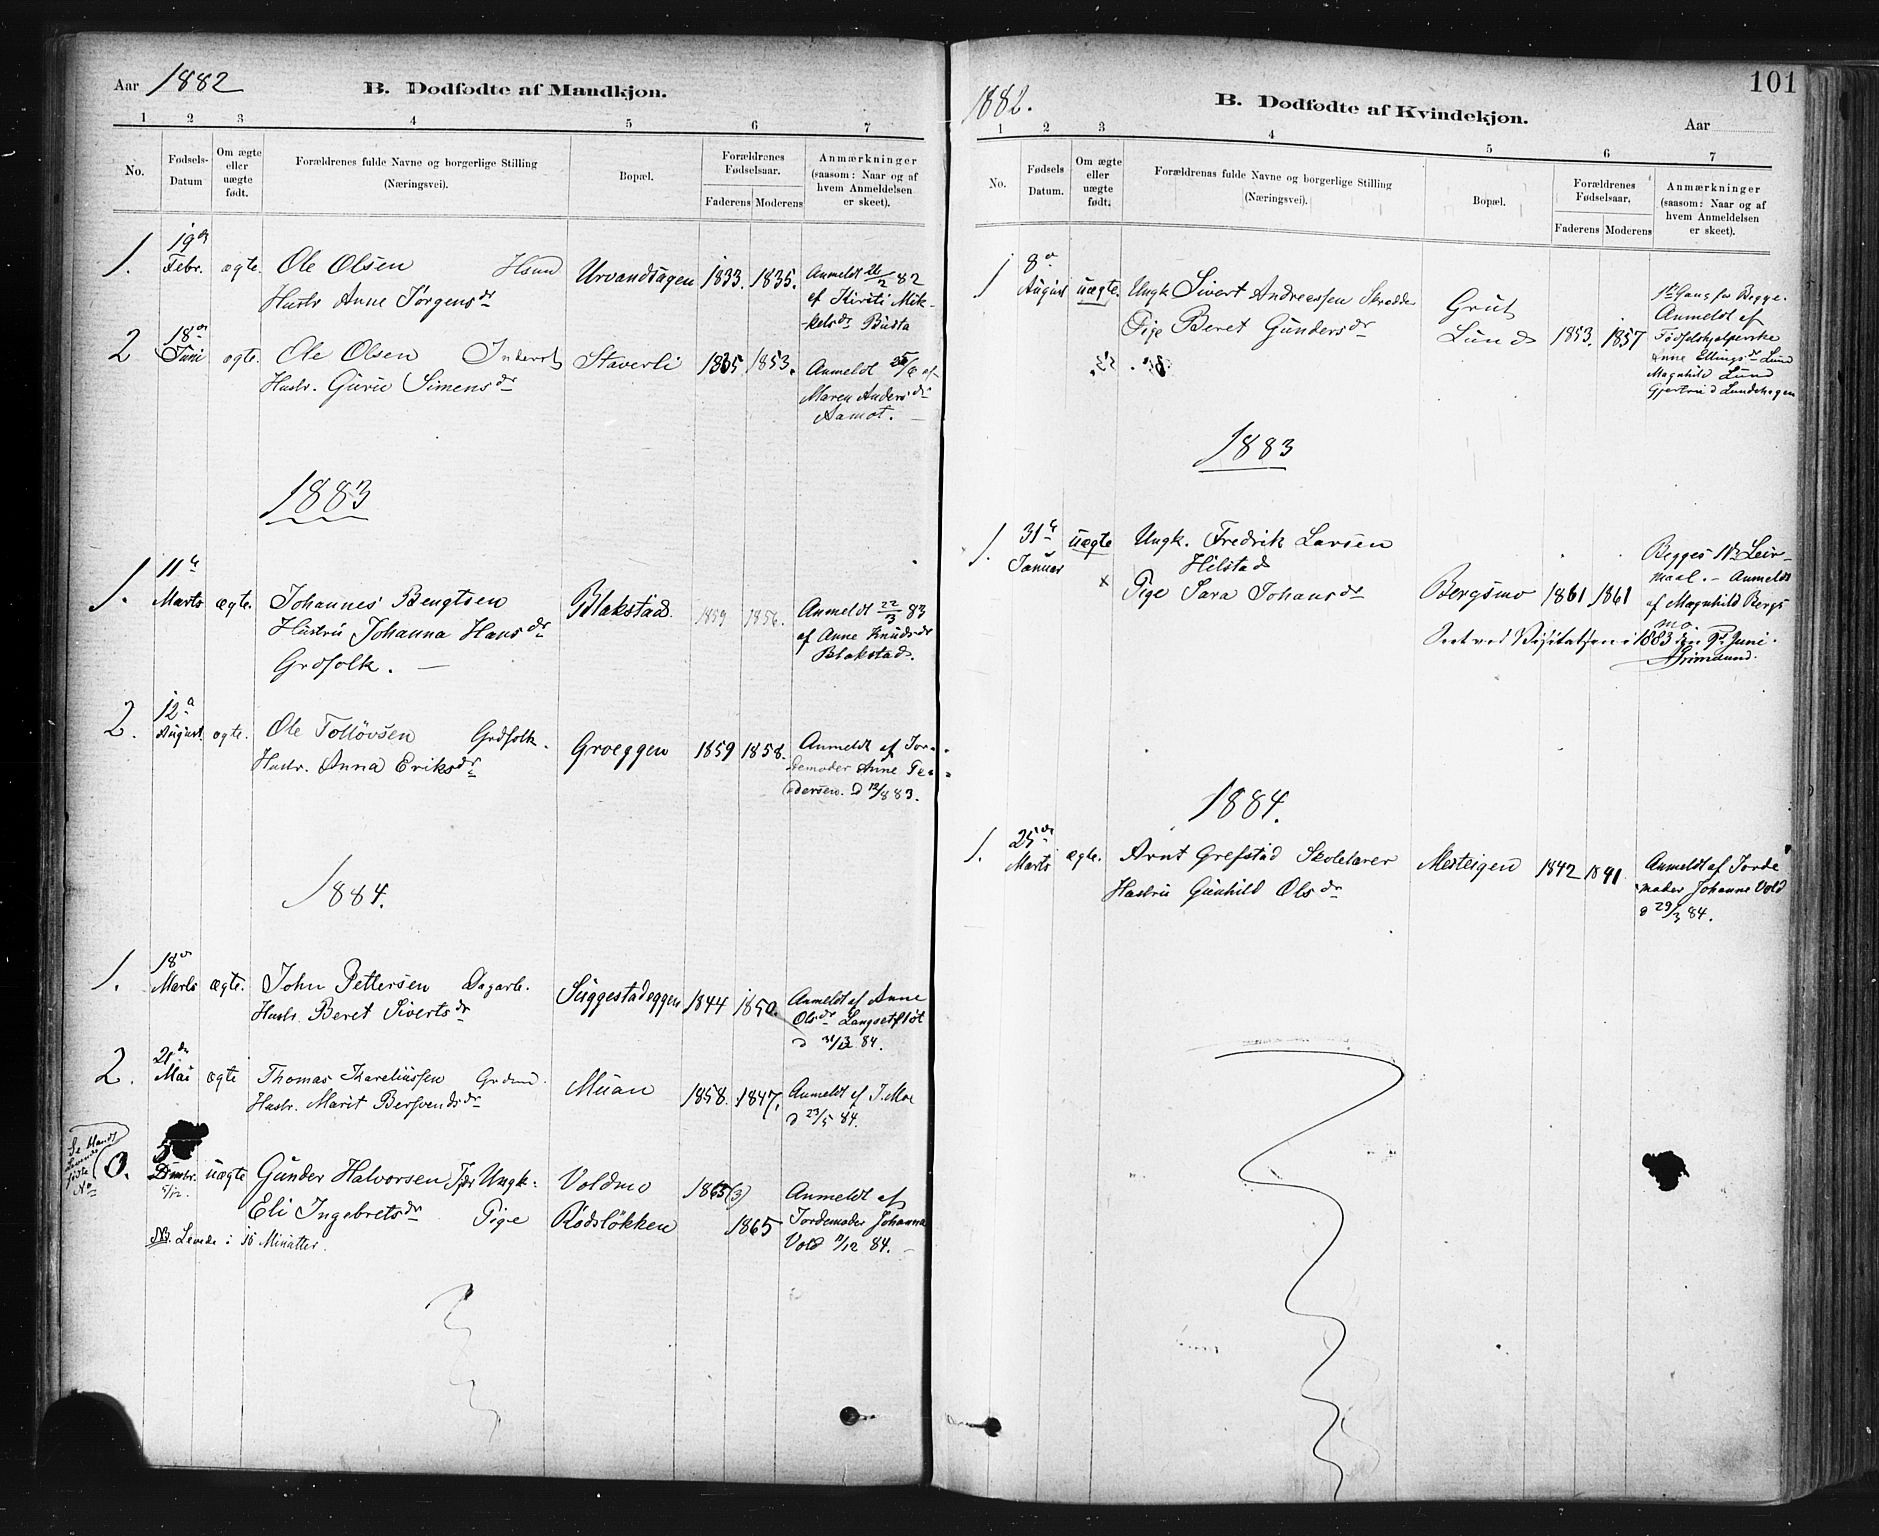 Aar 1882 B. Dødfødte af Mandkjøn.
1 2 3 4 5 6 7
No. Fødsels-Datum Om ægte eller uægte født. Forældrenes fulde Navne og borgerlige Stilling (Næringsvei). Bopæl. Forældrenes Fødselsaar. Faderens Moderens Anmærkninger (saasom: Naar og af hvem Anmeldelsen er skeet).
1. 19de Febr. ægte. Ole Olsen Husm Urvandsagen 1833. 1835. Anmeldt 26/2 82
Hustr Anne Jørgensdr af Kirsti Mik-
kelsdr Busta
2 18de Juni ægte. Ole Olsen Inderst Staverli 1835 1853. Anmeldt
Hustr. Guru Simensdr Maren Andersdr
Aamot.
1883
1. 11te Marts ægte. Johannes Bengtsen Blakstad 1859 1856. Anmeldt 22/3 83
Hustru Johanna Hansdr af Anne Knudsdr
Grdfolk. Blakstad.
2. 12te August. ægte. Ole Tollövsen Grdfolk. Groeggen 1859 1858. Anmeldt af Jor-
Hustr. Anna Eriksdr demoder Anne Pe-
dersen. d 12/8 83.
1884.
1. 18de Marts ægte. John Pettersen Dagarb. Suggestadeggen 1844 1850. Anmeldt af Anne
Hustr. Beret Sivertsdr Olsdr Langsetflöt
84.
2. 21de Mai ægte Thomas Kareliussen Grdmd. Muan 1858. 1847. Anmeldt af J. Moe
Hustr. Marit Bersvendsdr d 23/5 84.
Se blandt levende födte No
0. 5 uægte Gunder Halvorsen Ungk. Voldmo 1865 (3) Anmeldt af
Eli Ingebretsdr Pige Rödslökken 1865 Jordemoder Johanna
NB. Levede i 15 Minutter. Vold 11/12 84.
1882. B. Dødfødte af Kvindekjøn. Aar 101
1 2 3 4 5 6 7
No. Fødsels Datum. Om ægte eller uægte født. Forældrenas fulde Navne og borgerlige Stilling (Næringsvei). Bopæl. Forældrenes Fødselsaar. Faderens Moderens Anmærkninger (saasom: Naar og af hvem Anmeldelsen er skeet).
1 8de August uægte. Ungk Sivert Andreassen Skrædder Grut 1ste Gang for Begge.
Pige Beret Gundersdr Lund 1853. 1857 Anmeldt af
Fødselshjelperske
Anne Ellingsdr Lund
Magnhild Lund
Gjertrud Lundehagen
1883
1. 31te Januar uægte Ungk. Fredrik Larsen Begges 1ste Leier-
Hilstad maal. - Anmeldt
x Pige Sara Johansdr Bergsmo 1861 1861 af Magnhild Bergs
mo.
Seet ved Visitatsen i 1883 den 9de Juni.
Grimelund.
1884.
1. 25de Marts ægte. Arnt Grefstad Skolelærer Mesteigen 1842 1841 Anmeldt af Jorde
Hustru Gunhild Olsdr moder Johanne Vold
d 29/3 84.